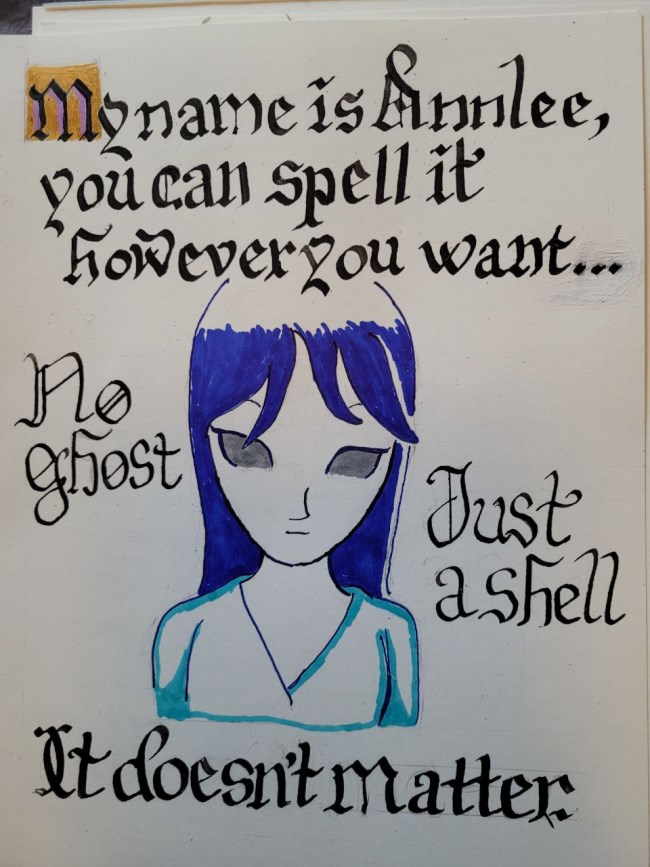 My name is Annlee,
you can spell it
however you want...
No
ghost
Just
a shell
It doesn't matter.